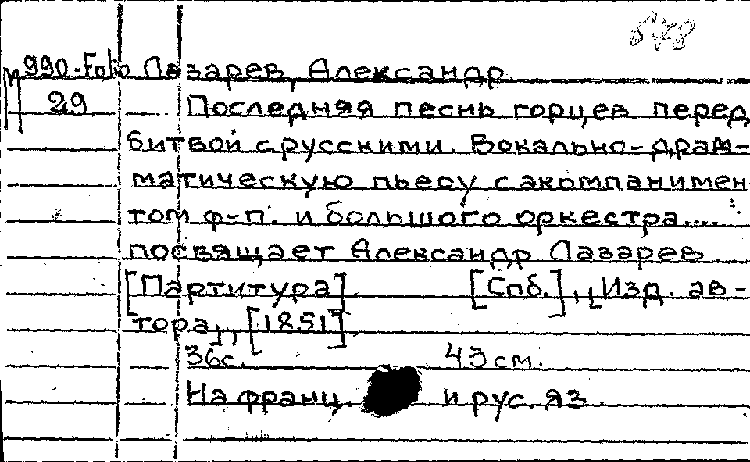 578
990-Folio Лазарев, Александр
29 Последняя песнь горцев перед
битвой с русскими. Вокально-драм-
матическую пьесу с акомпанимен
том ф-п. и большого оркестра....
посвящает Александр Лазарев
[Партитура] [Спб.], "Изд. ав-
тора", [1851]
36с. 43 см.
На франц. и рус. яз